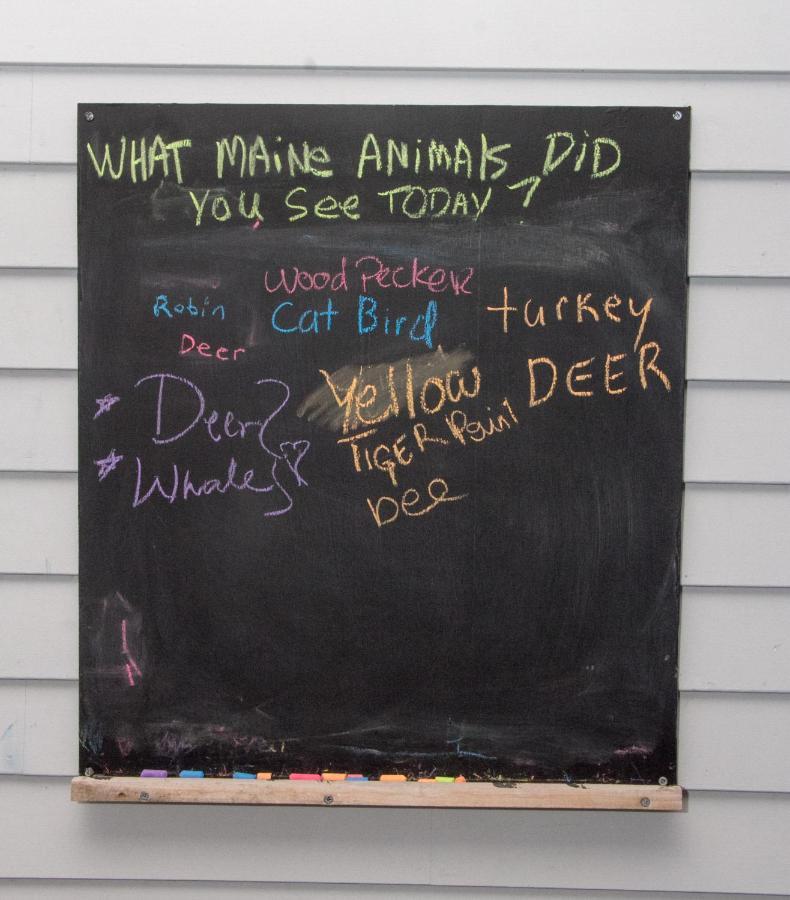 WHAT MAINE ANIMALS DID
YOU SEE TODAY?
Wood Pecker
Robin
Cat Bird
turkey
Deer
DEER
Deer
Whales
Yellow
TIGER
Dee